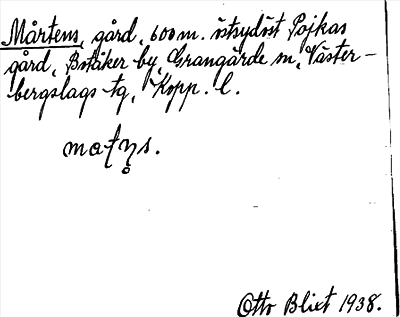 Mårtens, gård, 600 m. istsydöst Pojkas
gård, Botåker by, Grangärde sn, Väster-
bergslags tg, Kopp. l.
Otto Blixt 1938.